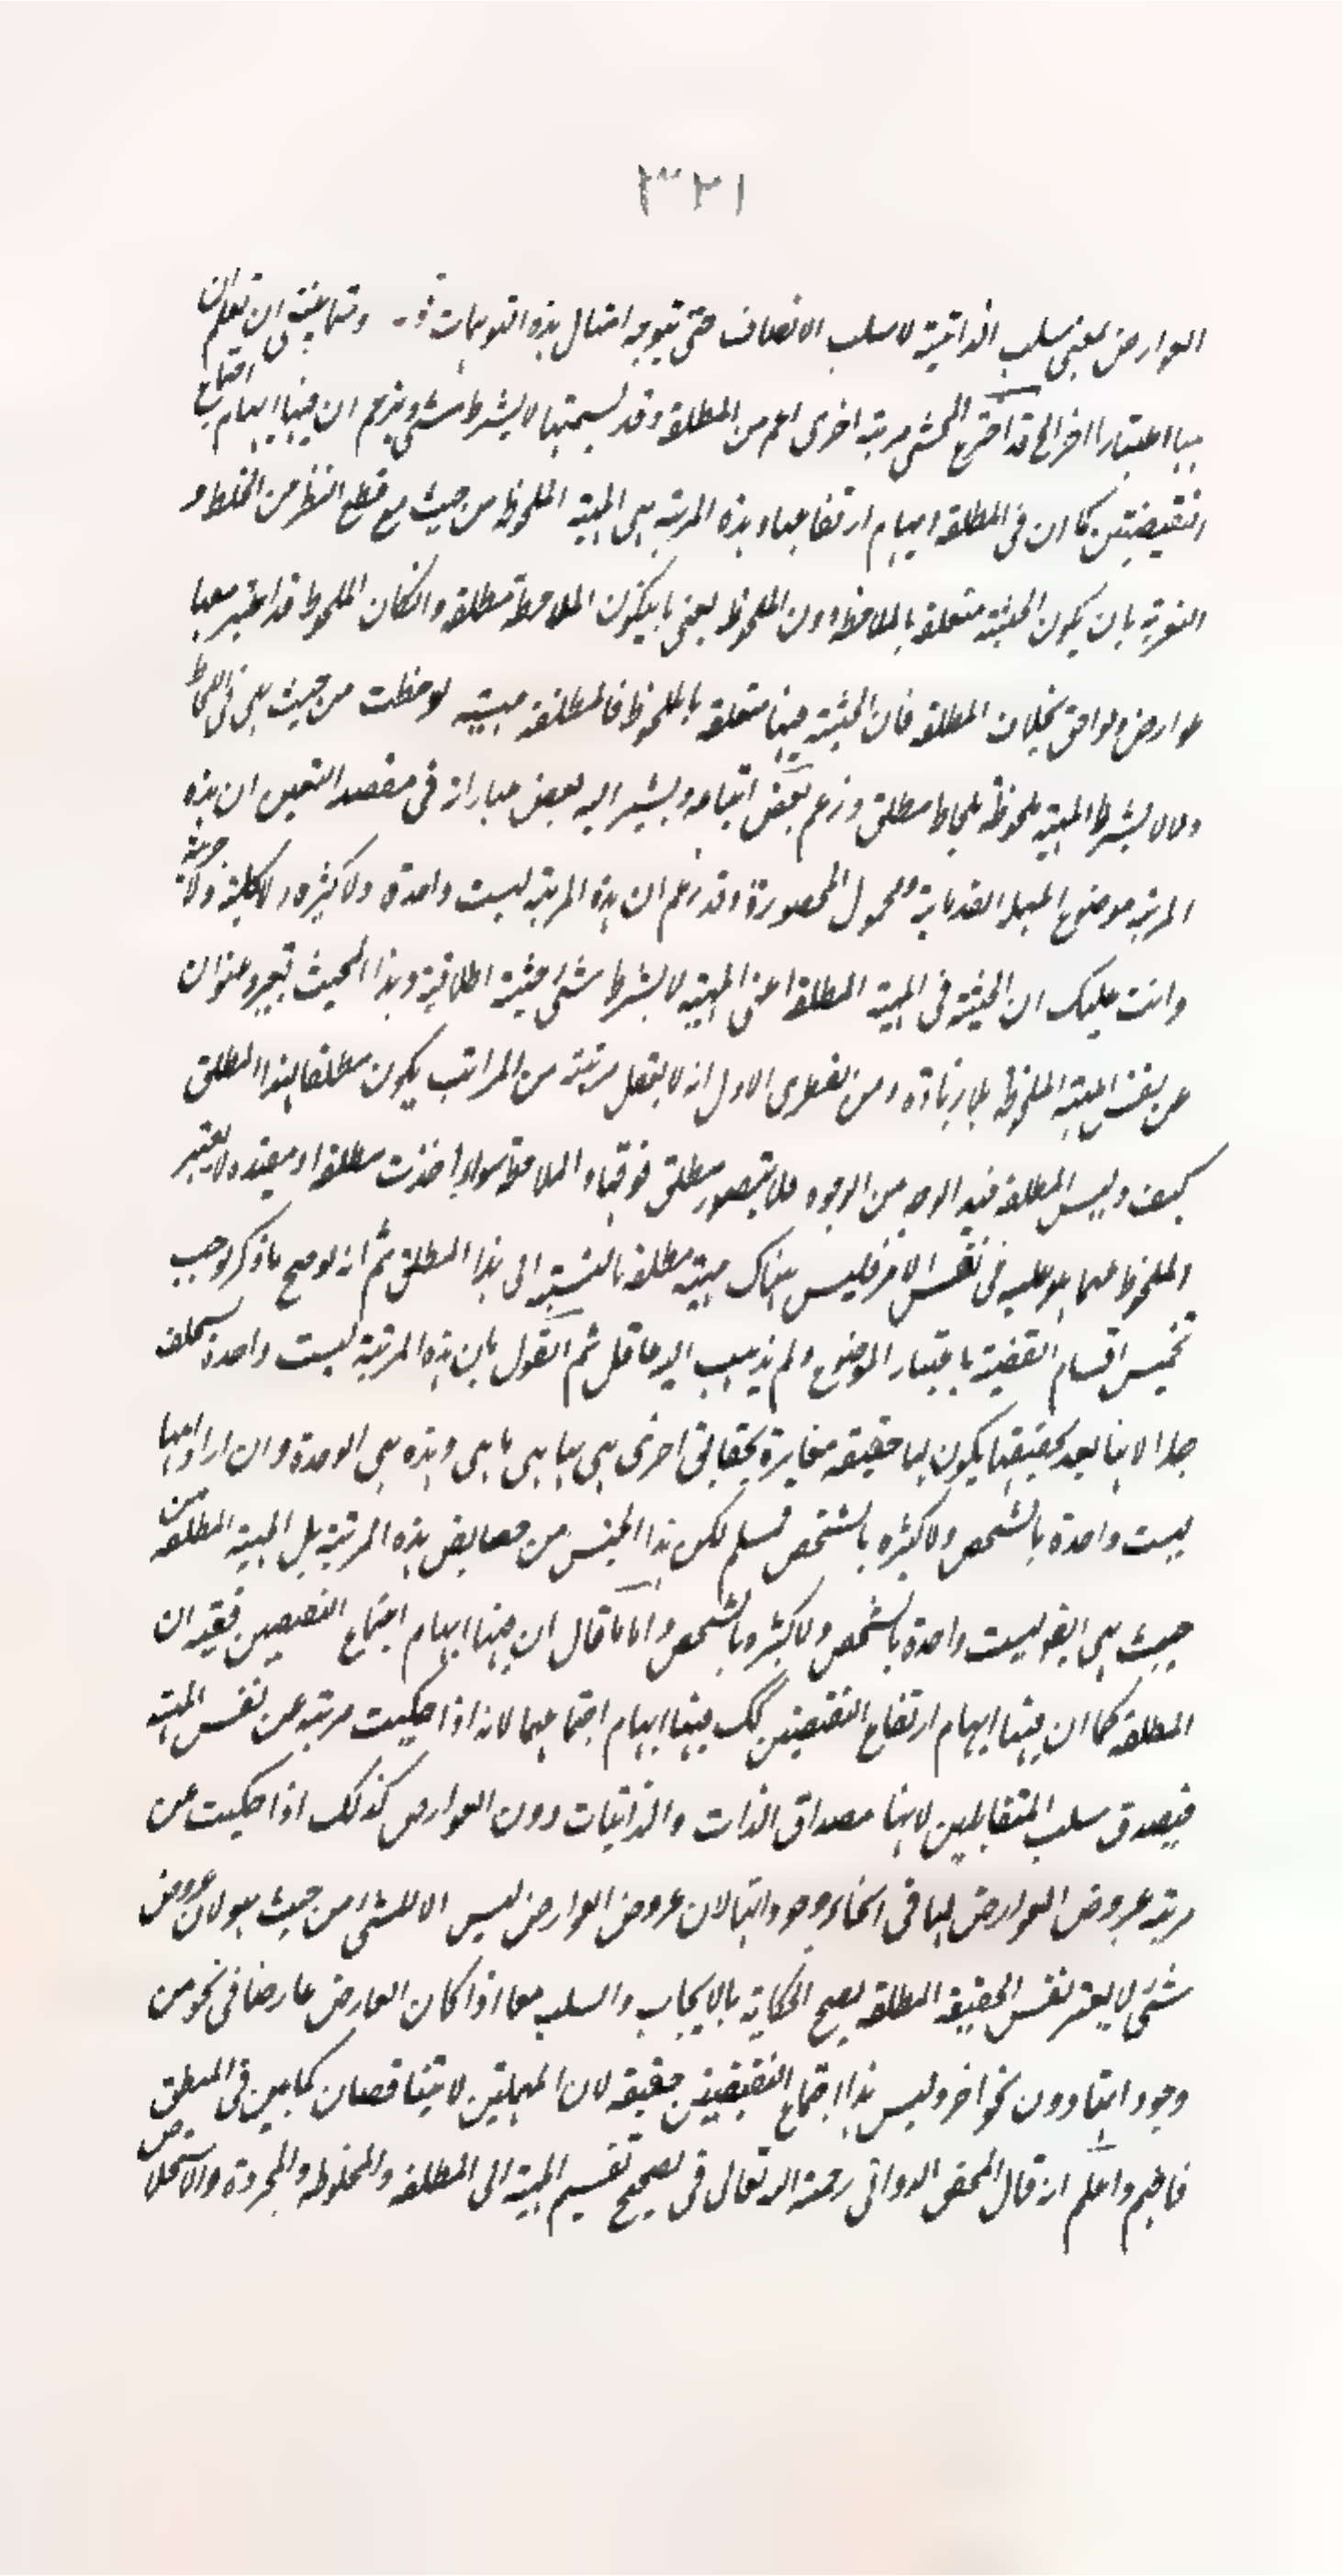 ١٢٣
العوارض بمعنى سلب الذاتية لا سلب الاتصاف حتى يتوجه امثال هذه التوجيهات ومما ينبغى ان تعلم ان
ههنا اعتبارا اخر الخ قد اخترع المحشى مرتبة اخرى اعم من المطلقة وقد يسميتها لا بشرط شئ ويزعم ان فيها ايهام اجتماع
النقيضين كما ان فى المطلقة ايهام ارتفاعهما وهذه المرتبة هى المهية الملحوظة من حيث هى مع قطع النظر من الخلط و
التعرية بان يكون الحيثية متعلقة بالملاحظة دون الملحوظ بمعنى ان يكون الملاحظة مطلقة وان كان الملحوظ قد اعتبر معها
عوارض ولواحق بخلاف المطلقة فان الحيثية فيها متعلقة بالملحوظ فالمطلقة مهية لوحظت من حيث هى فى اللحاظ
ولا لا بشرط المهية ملحوظة بلحاظ مطلق وزعم بعض اتباعه ويشير اليه بعض عباراته فى مقصد التعين ان هذه
المرتبة موضوع المهملة القدمائية ومحمول المحصورة وقد زعم ان هذه المرتبة ليست واحدة ولا كثيرة ولا كلية ولا جزئية
وانت عليك ان الحيثية فى المهية المطلقة اعنى المهية لا بشرط شئ حيثية اطلاقية وهذا الحيث تعبير وعنوان
عن نفس المهية الملحوظة بلا زيادة ومن الفطرى الاول انه لا يعقل مرتبة من المراتب يكون مطلقا لهذا المطلق
كيف وليس المطلقة قيد الوجه من الوجوه فلا يتصور مطلق فوقها والملاحظة سواء اخذت مطلقة او مقيدة لا يغير
الملحوظ عما هو عليه فى نفس الامر فليس هناك مهية مطلقة بالنسبة الى هذا المطلق ثم انه لو صح ما ذكر لوجب
تخميس اقسام القضية باعتبار الموضوع ولم يذهب اليه عاقل ثم القول بان هذه المرتبة ليست واحدة
جدا لانها بعد حقيقتها يكون لها حقيقة مغايرة لحقائق اخرى هى بها هى ما هى وهذه هى الوحدة وان اراد انها
ليست واحدة بالشخص ولا كثيرة بالشخص فمسلم لكن هذا ليس من خصايص هذه المرتبة بل المهية المطلقة من
حيث هى ايضا ليست واحدة بالشخص ولا كثيرة بالشخص واما ما قال ان ههنا ايهام اجتماع النقيضين ففيه ان
المطلقة كما ان فيها ايهام ارتفاع النقيضين كك فيها ايهام اجتماعهما لانه اذا حكيت مرتبة عن نفس المهية
فيصدق سلب المتقابلين لانها مصداق الذات والذاتيات دون العوارض كذلك اذا حكيت عن
مرتبة عروض العوارض لها فى انحاء وجوداتها لان عروض العوارض ليس الا للشئ من حيث هو لان عروض
شئ لا يغير نفس الحقيقة المطلقة يصح الحكاية بالايجاب والسلب معا اذا كان العارض عارضا فى نحو من
وجوداتها دون نحو اخر وليس هذا اجتماع النقيضين حقيقة لان المهملتين لا يتناقضان كما بين فى المنطق
فافهم واعلم انه قال المحقق الدوانى رحمة الله تعالى فى تصحيح تقسيم المهية الى المطلقة والمخلوطة والمجردة والاستخلاص